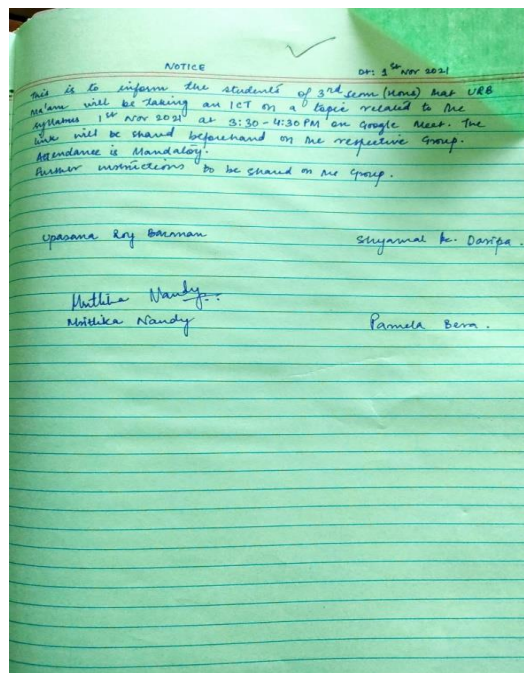 NOTICE
Dt: 1st Nov 2021
This is to inform the students of 3rd sem (Hons) that URB
Ma'am will be taking an ICT on a topic related to the
syllabus 1st Nov 2021 at 3:30 - 4:30 PM on Google Meet. The
link will be shared beforehand on the respective Group.
Attendance is Mandatory.
Further instructions to be shared on the Group.
Upasana Roy Barman
Shyamal Kr. Daripa.
Mritlika Nandy
Mritlika Nandy
Pamela Bera.